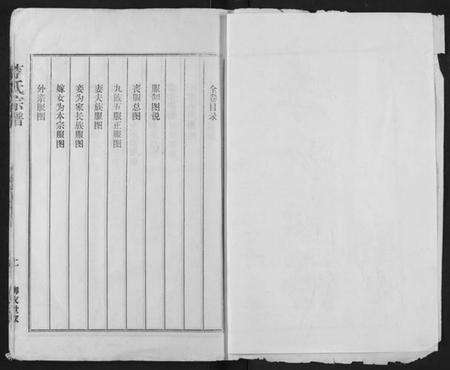 全卷目录
服制图说
丧服总图
九族五服正服图
妻夫族服图
妾为家长族服图
嫁女为本宗服图
外亲服图
氏宗谱
上